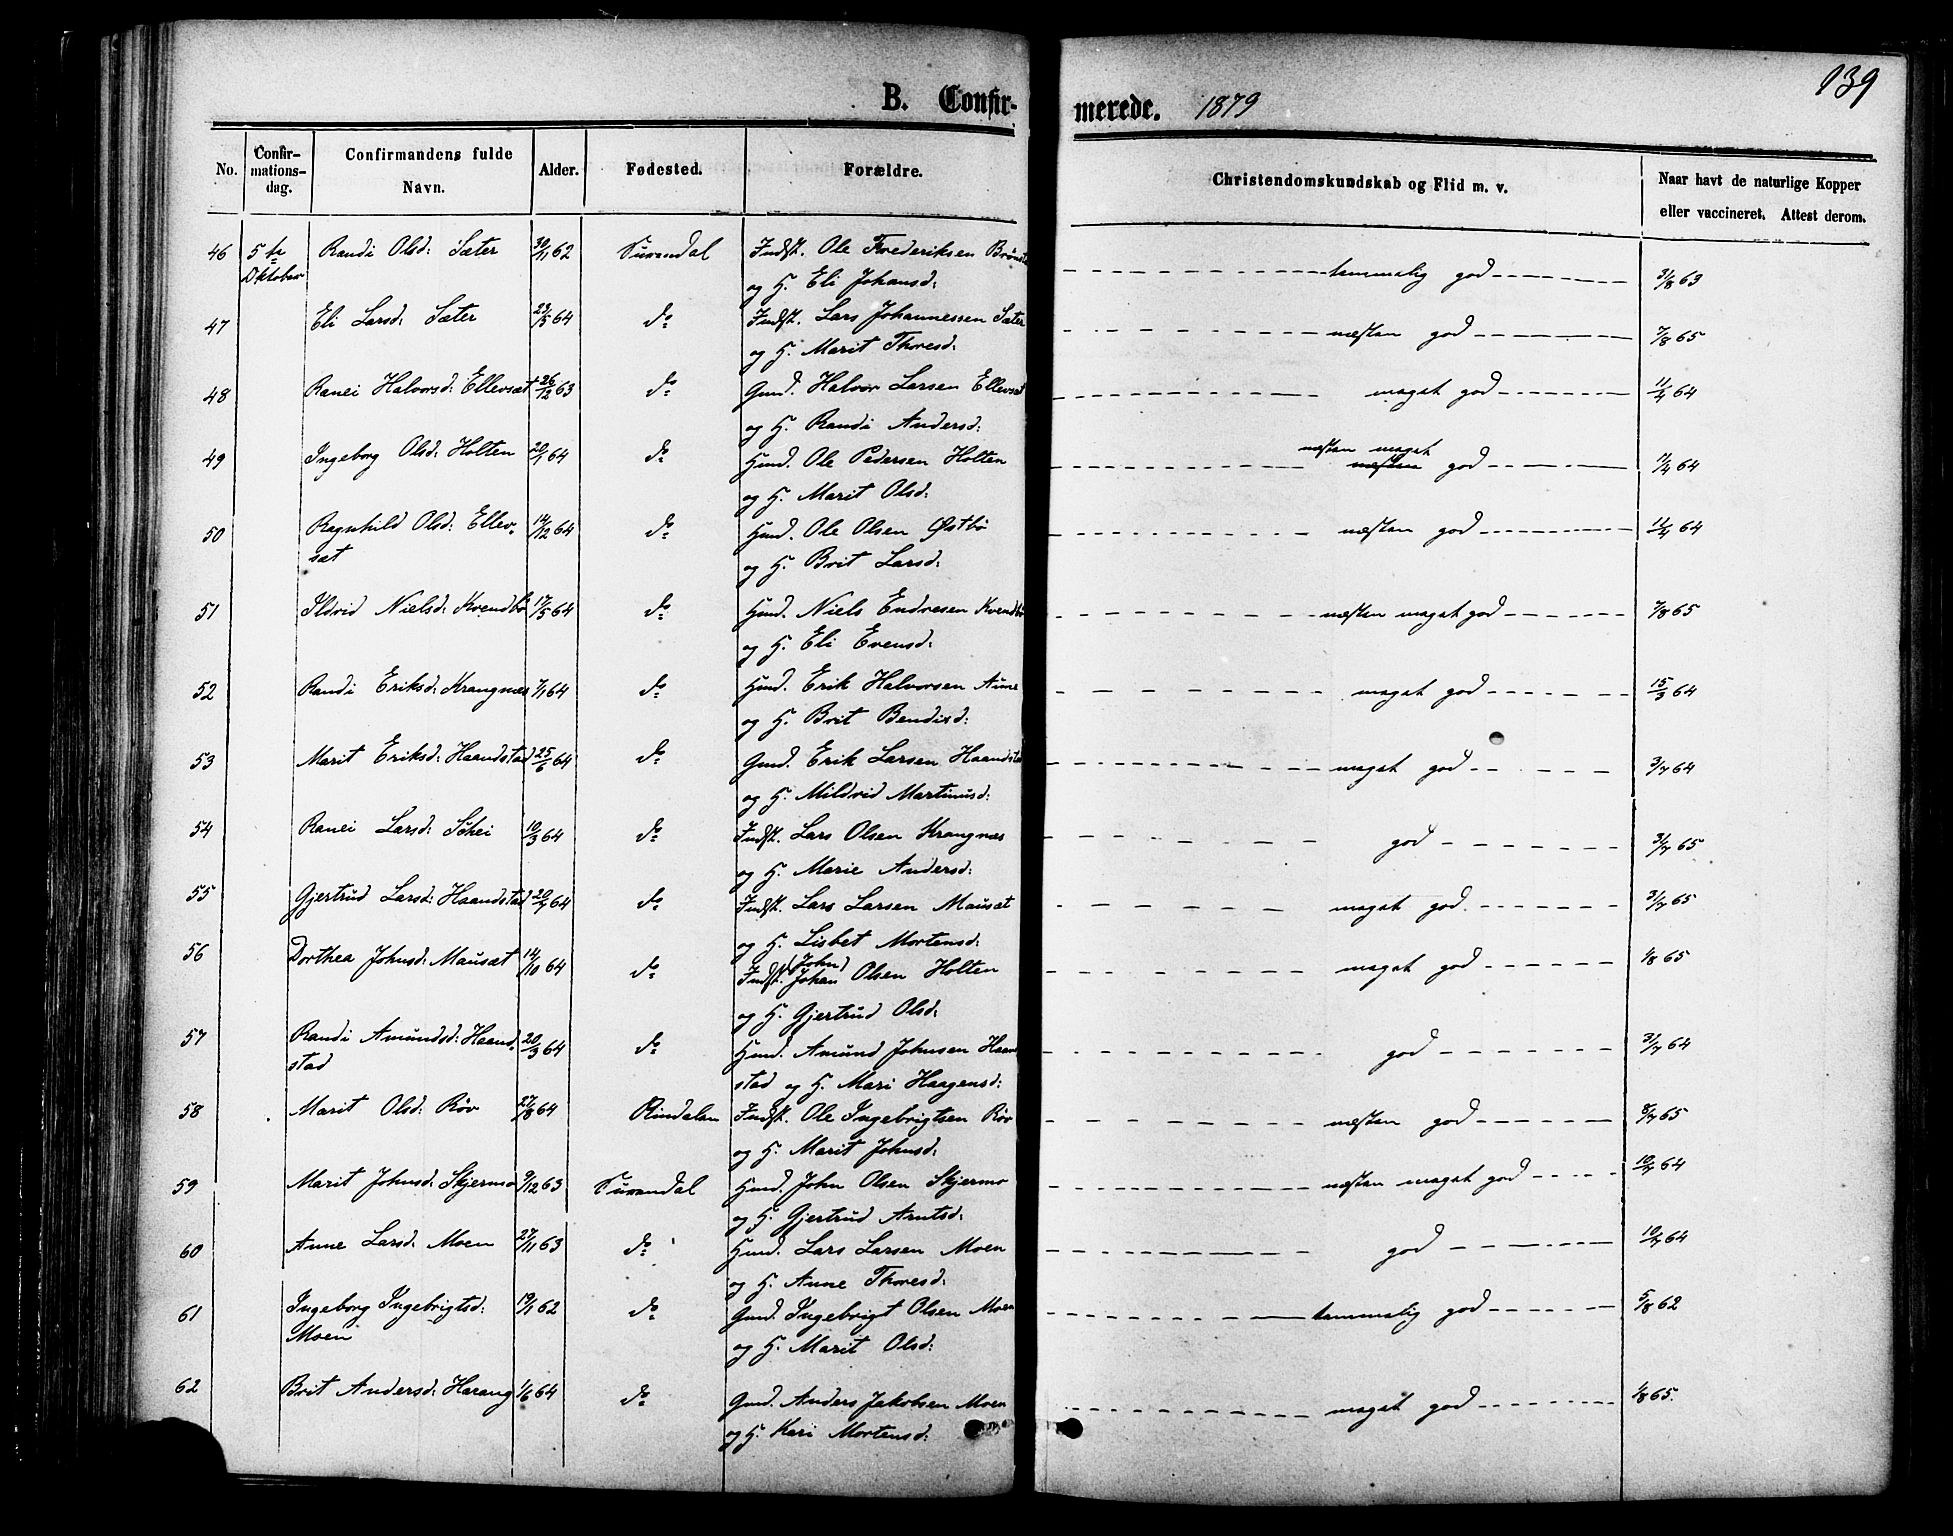 139
B. Confirmerede. 1879
No. Confirmationsdag. Confirmandens fulde Navn. Alder. Fødested. Forældre. Christendomskundskab og Flid m. v. Naar havt de naturlige Kopper eller vaccineret. Attest derom.
46 5te Oktober Randi Olsd: Sæter 30/11 62 Surendal Indst. Ole Frederiksen temmelig god 3/8 63
og H. Eli Johansd:
47 Eli Larsd: Sæter 23/5 64 do Indst. Lars Johannessen Sæter næsten god 7/8 65
og H. Marit Thoresd:
48 Ranei Halvorsd: Ellevsæt 26/12 63 do Gmd. Halvor Larsen Ellevsæt meget god 11/4 64
og H. Randi Andersd:
49 Ingeborg Olsd: Holten 20/1 64 do Hmd. Ole Pedersen Holten næsten meget god 11/4 64
og H. Marit Olsd:
50 Ragnhild Olsd: Ellev- 14/12 64 do Hmd. Ole Olsen Østbø næsten god 11/4 64
sæt og H. Brit Larsd:
51 Ildrid Nielsd: Kvendbø 17/5 64 do Hmd. Niels Endresen Kvendbø næsten meget god 7/8 65
og H. Eli Evensd:
52 Randi Eriksd: Krangnæs 7/1 64 do Hmd. Erik Halvorsen Aune meget god 15/3 64
og H. Brit Bendisd:
53 Marit Eriksd: Haandstad 25/6 64 do Gmd. Erik Larsen Haandstad meget god 3/7 64
og H. Mildrid Martinusd:
54 Ranei Larsd: 10/3 64 do Indst. Lars Olsen Krangnæs god 3/7 65
og H. Marie Andersd:
55 Gjertrud Larsd: Haandstad 20/7 64 do Indst. Lars Larsen Mausæt meget god 3/7 65
og H. Lisbet Mortensd:
56 Dorthea Johnsd: Mausæt 14/10 64 do Indst. Johan (John) Olsen Holten meget god 1/8 65
og H. Gjertrud Olsd:
57 Randi Amundsd: Haand- 20/3 64 do Hmd. Amund Johnsen Haand- god 3/7 64
stad stad og H. Mari Haagensd:
58 Marit Olsd: Røv 27/8 64 Rindalen Indst. Ole Ingebrigtsen Røv næsten god 8/7 65
og H. Marit Johnsd:
59 Marit Johnsd: Skjermo 9/12 63 Surendal Hmd. John Olsen Skjermo næsten meget god 10/7 64
og H. Gjertrud Arntsd:
60 Anne Larsd: Moen 27/11 63 do Hmd. Lars Larsen Moen god 10/7 64
og H. Anne Thoresd:
61 Ingeborg Ingebrigtsd: 19/1 62 do Gmd. Ingebrigt Olsen Moen temmelig god 5/8 62
Moen og H. Marit Olsd:
62 Brit Andersd: Harang 1/6 64 do Gmd. Anders Jakobsen Moen meget god 1/8 65.
og H. Kari Mortensd: